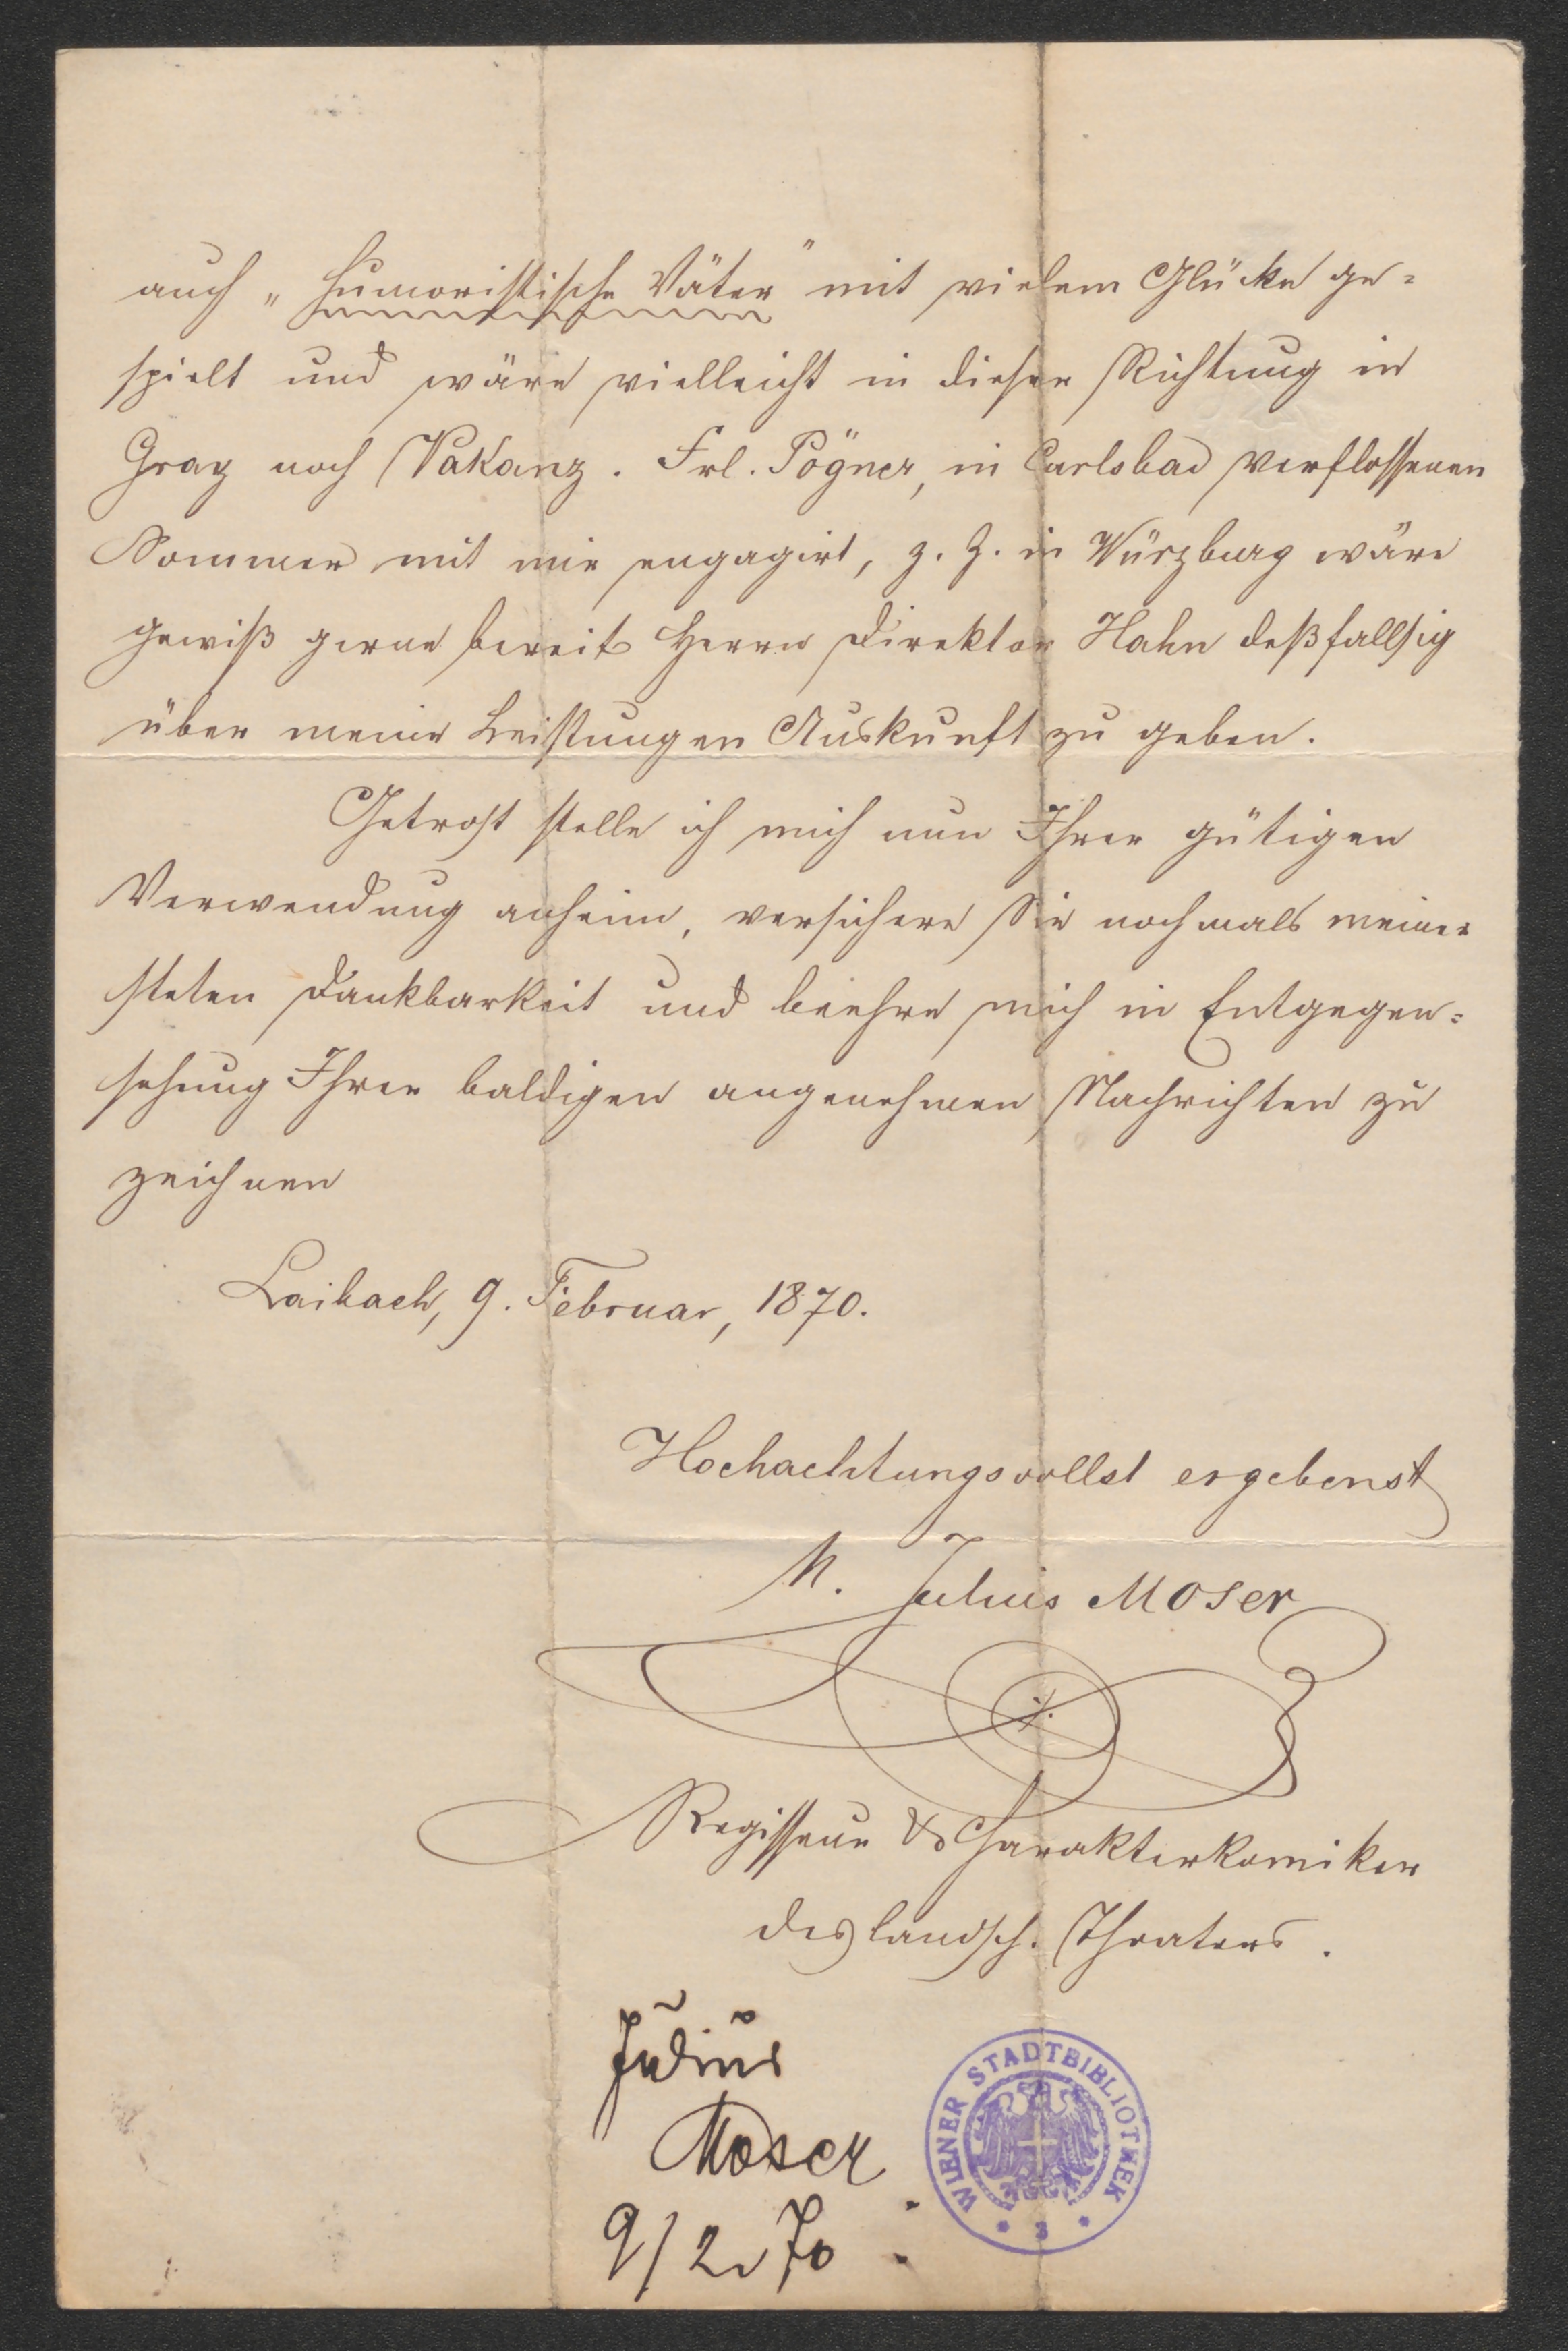 auch „humoristische Väter" mit vielem Glücke ge=
spielt und wäre vielleicht in dieser Richtung in
Graz noch Vakanz. Frl. Pögner, in Carlsbad verflossenen
Sommer mit mir engagirt, z. Z. in Würzburg wäre
gewiß gerne bereit Herrn Direktor Hahn deßfallsig
über meine Leistungen Auskunft zu geben.
Getrost stelle ich mich nun Ihrer gütigen
Verwendung anheim, versichere Sie nochmals meiner
steten Dankbarkeit und beehre mich in Entgegen=
sehung Ihrer baldigen angenehmen Nachrichten zu
zeichnen
Laibach, 9. Februar, 1870.
Hochachtungsvollst ergebenst
M. Julius Moser
Regisseur & Charakterkomiker
des landsch. Theaters.
Julius
Moser
9/2 70
WIENER STADTBIBLIOTHEK
* 3 *